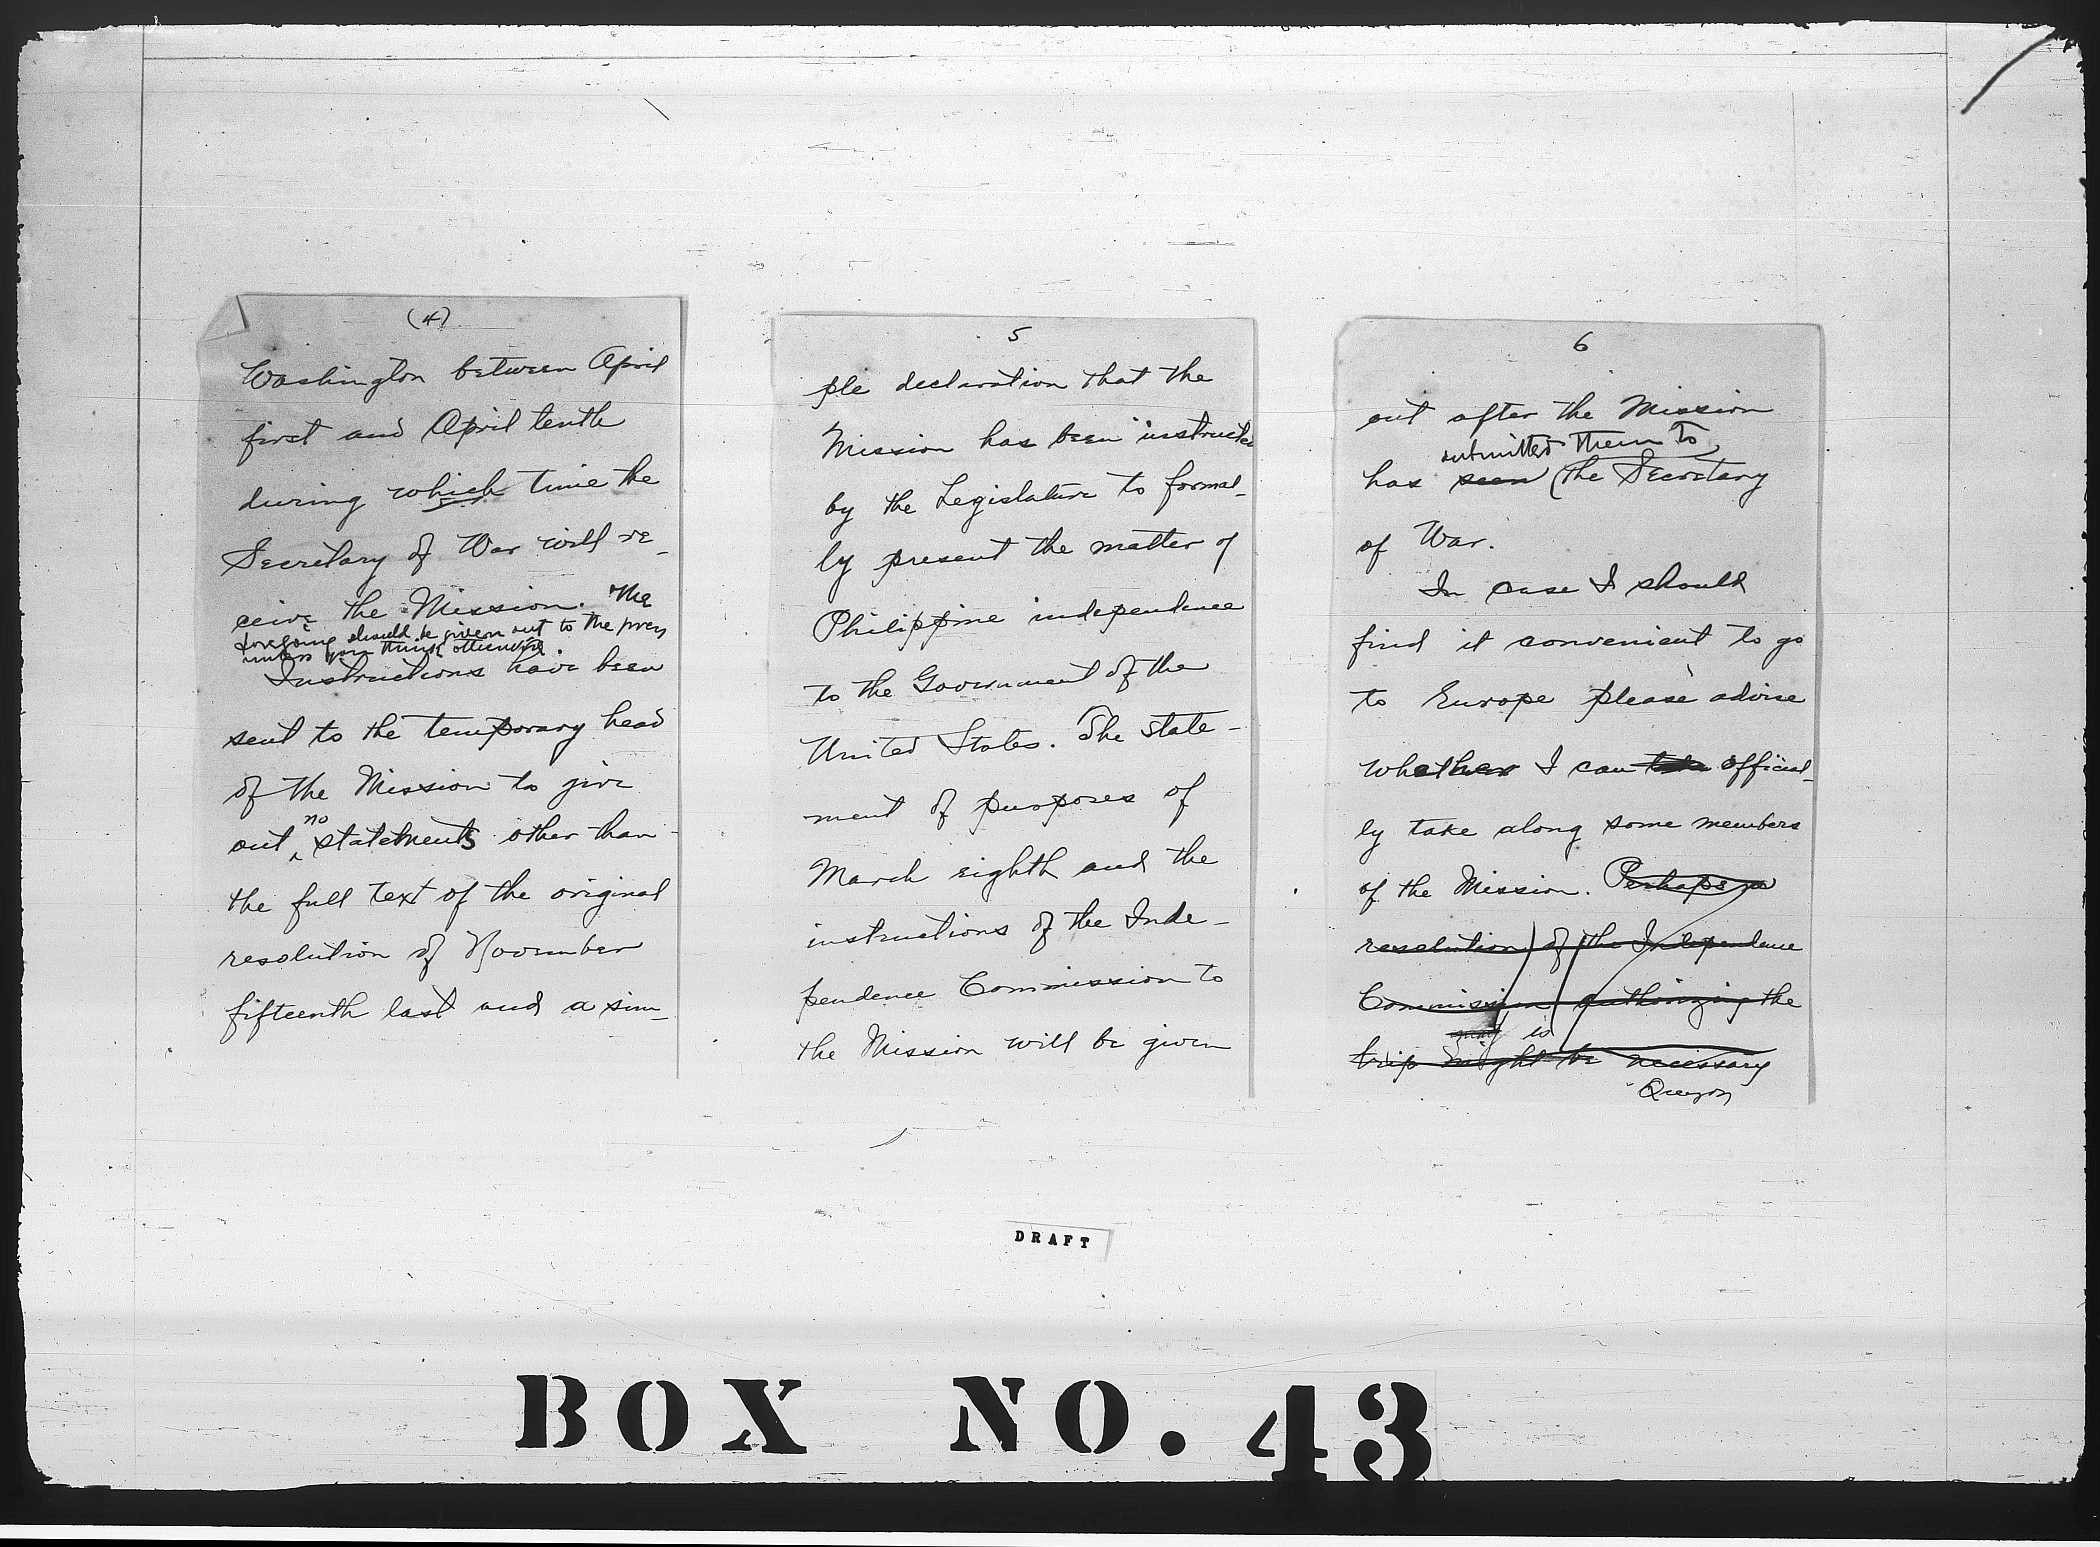 (4)
Washington between April
first and April tenth
during which time the
Secretary of War will re-
ceive the Mission. The
foregoing should be given out to the press
unless you think otherwise
Instructions have been
sent to the temporary head
of the Mission to give
out no statements other than
the full text of the original
resolution of November
fifteenth last and a sim-
5
ple declaration that the
Mission has been instructed
by the Legislature to formal-
ly present the matter of
Philippine independence
to the Government of the
United States. The state-
ment of purposes of
March eighth and the
instructions of the Inde-
pendence Commission to
the Mission will be given
6
out after the Mission
submitted them to
has seen the Secretary
of War.
In case I should
find it convenient to go
to Europe please advise
whether I can official-
ly take along some members
of the Mission. Perhaps a
resolution of the Independence
Commission authorizing the
may is
trip might be necessary
Quezon
DRAFT
BOX NO. 43